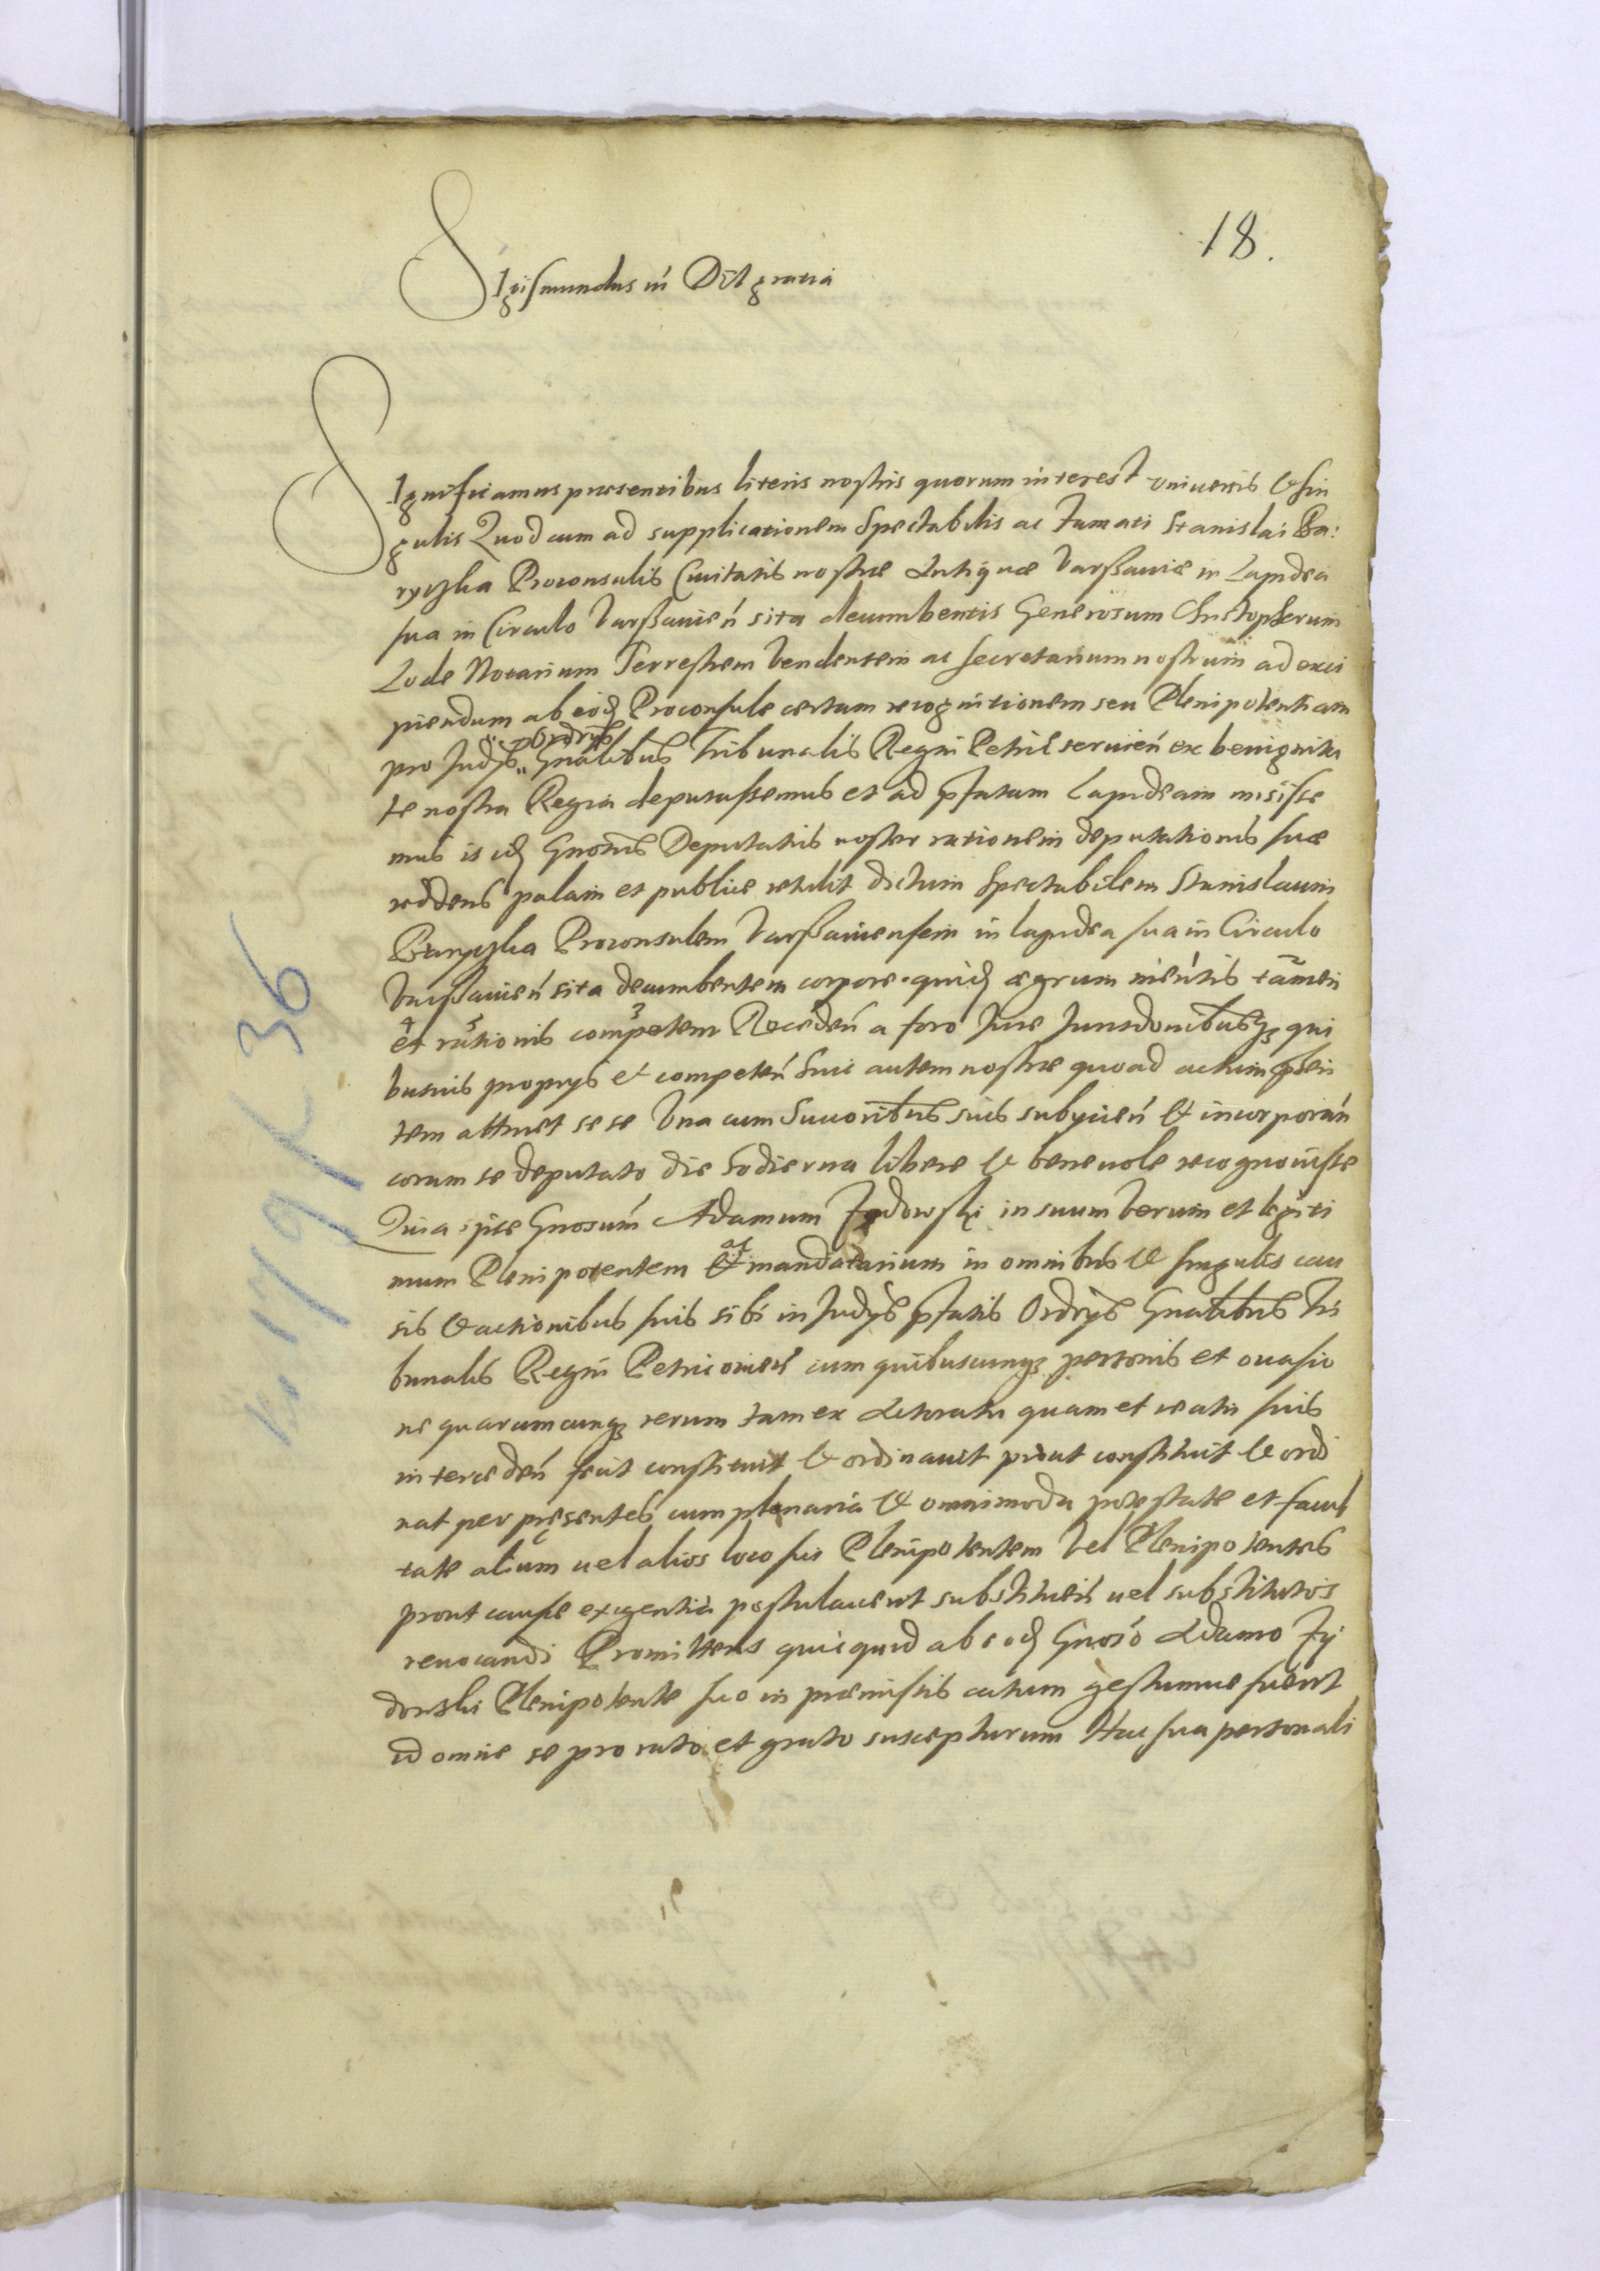 18.
Sigismundus iij Dei gratia
Significamus præsentibus literis nostris quorum interest vniuersis & sin
gulis Quod cum ad supplicationem Spectabilis ac Famati Stanislai Ba:
ryczka Proconsulis Ciuitatis nostræ Antiquæ Varßauiæ in Lapidea
sua in Circulo Varßauień sita decumbentis Generosum Christopherum
Lode Notarium Terrestrem Vendensem ac secretarium nostrum ad exci
piendum ab eod Proconsule certam recognitionem seu Plenipotentiam
Ordrijs
pro Judijs Gnalibus Tribunalis Regni Petric seruień ex benignita
te nostra Regia deputassemus et ad pfatam Lapideam misisse
mus is id Gnosus Deputatus noster rationem deputationis suæ
reddens palam et publice retulit dictum Spectabilem Stanislaum
Baryczka Proconsulem Varßauiensem in lapidea sua in Circulo
Varßauień sita decumbentem corpore quid ægrum mentis tamen
et rationis compotem Recedeń a foro Jure Jurisdonibusq qui
busuis proprijs & competeń Huic autem nostræ quoad actum pñ
tem attinet se se Vna cum Succoribus suis subijcień & incorporań
coram se deputato die hodierna libere & beneuole recognouisse
Quia ipse Gnosum Adamum Zydowski in suum verum et legiti
ac
mum Plenipotentem & mandatarium in omnibus & singulis cau
sis & actionibus suis sibi in Judijs pfatis Ordrijs Gnalibus Tri
bunalis Regni Petricouień cum quibuscunq personis et occasio
ne quarumcunq rerum tam ex Actoratu quam et reatu suis
intercedeń fecit constituit & ordinauit prout constituit & ordi
nat per præsentes cum plenaria & omnimoda potestate et facul
tate alium uel alios loco sui Plenipotentem Vel Plenipotentes
prout causæ exigentia postulauerit substitueń uel substitutos
reuocandi Promittens quicquid ab eod Gnoso Adamo Zy
dowski Plenipotente suo in præmissis actum gestumue fuerit
id omne se pro rato et grato suscepturum Hac sua personali